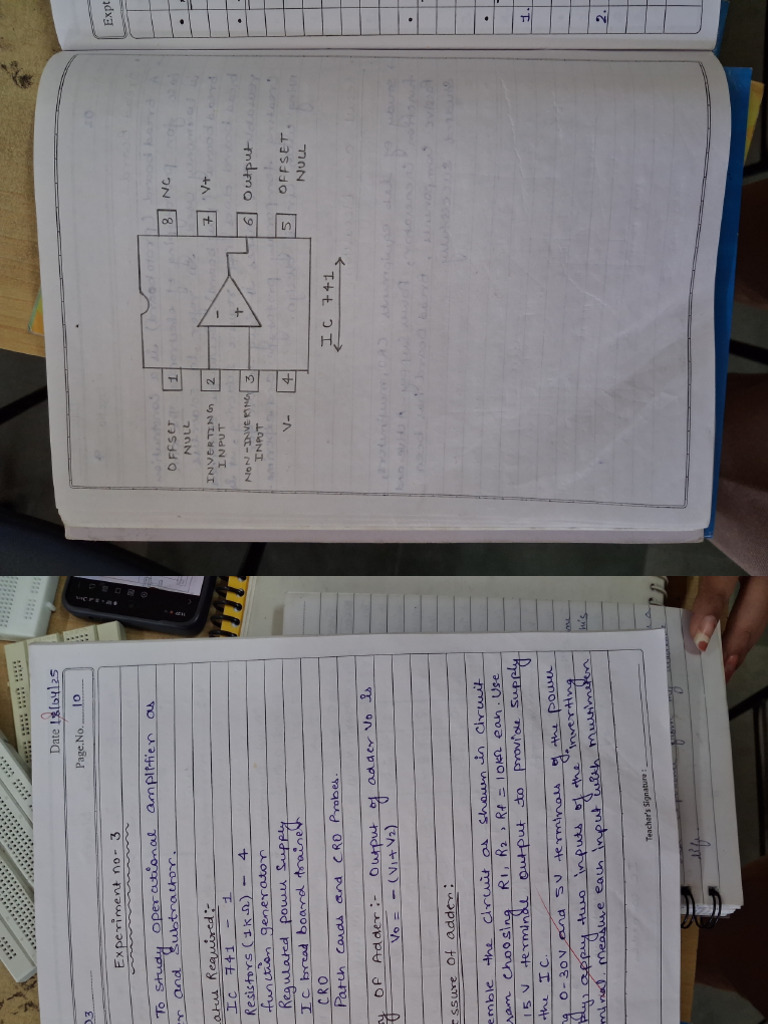 Expt
1.
2.
8 NC
7 V+
6 Output
5 OFFSET NULL
1 OFFSET NULL
2 INVERTING INPUT
3 NON-INVERING INPUT
4 V-
-
+
IC 741
Date 18/04/25
Page No. 10
03
Experiment no- 3
To study operational amplifier as
r and Subtractor.
atus Required:-
IC 741 - 1
Resistors (1KΩ) - 4
function generator
Regulated power Supply
IC bread board trainer
CRO
Patch cards and CRO Probes.
y OF Adder:- Output of adder Vo is
Vo = - (V1+V2)
essure of adder:
emble the circuit as shown in circuit
ram choosing R1, R2, Rf = 10kΩ each. Use
15 V terminale output to provide supply
the IC.
g 0-30V and 5V terminals of the power
ply, apply two inputs of the inverting
minal. Measure each input with multimeter
Teacher's Signature :